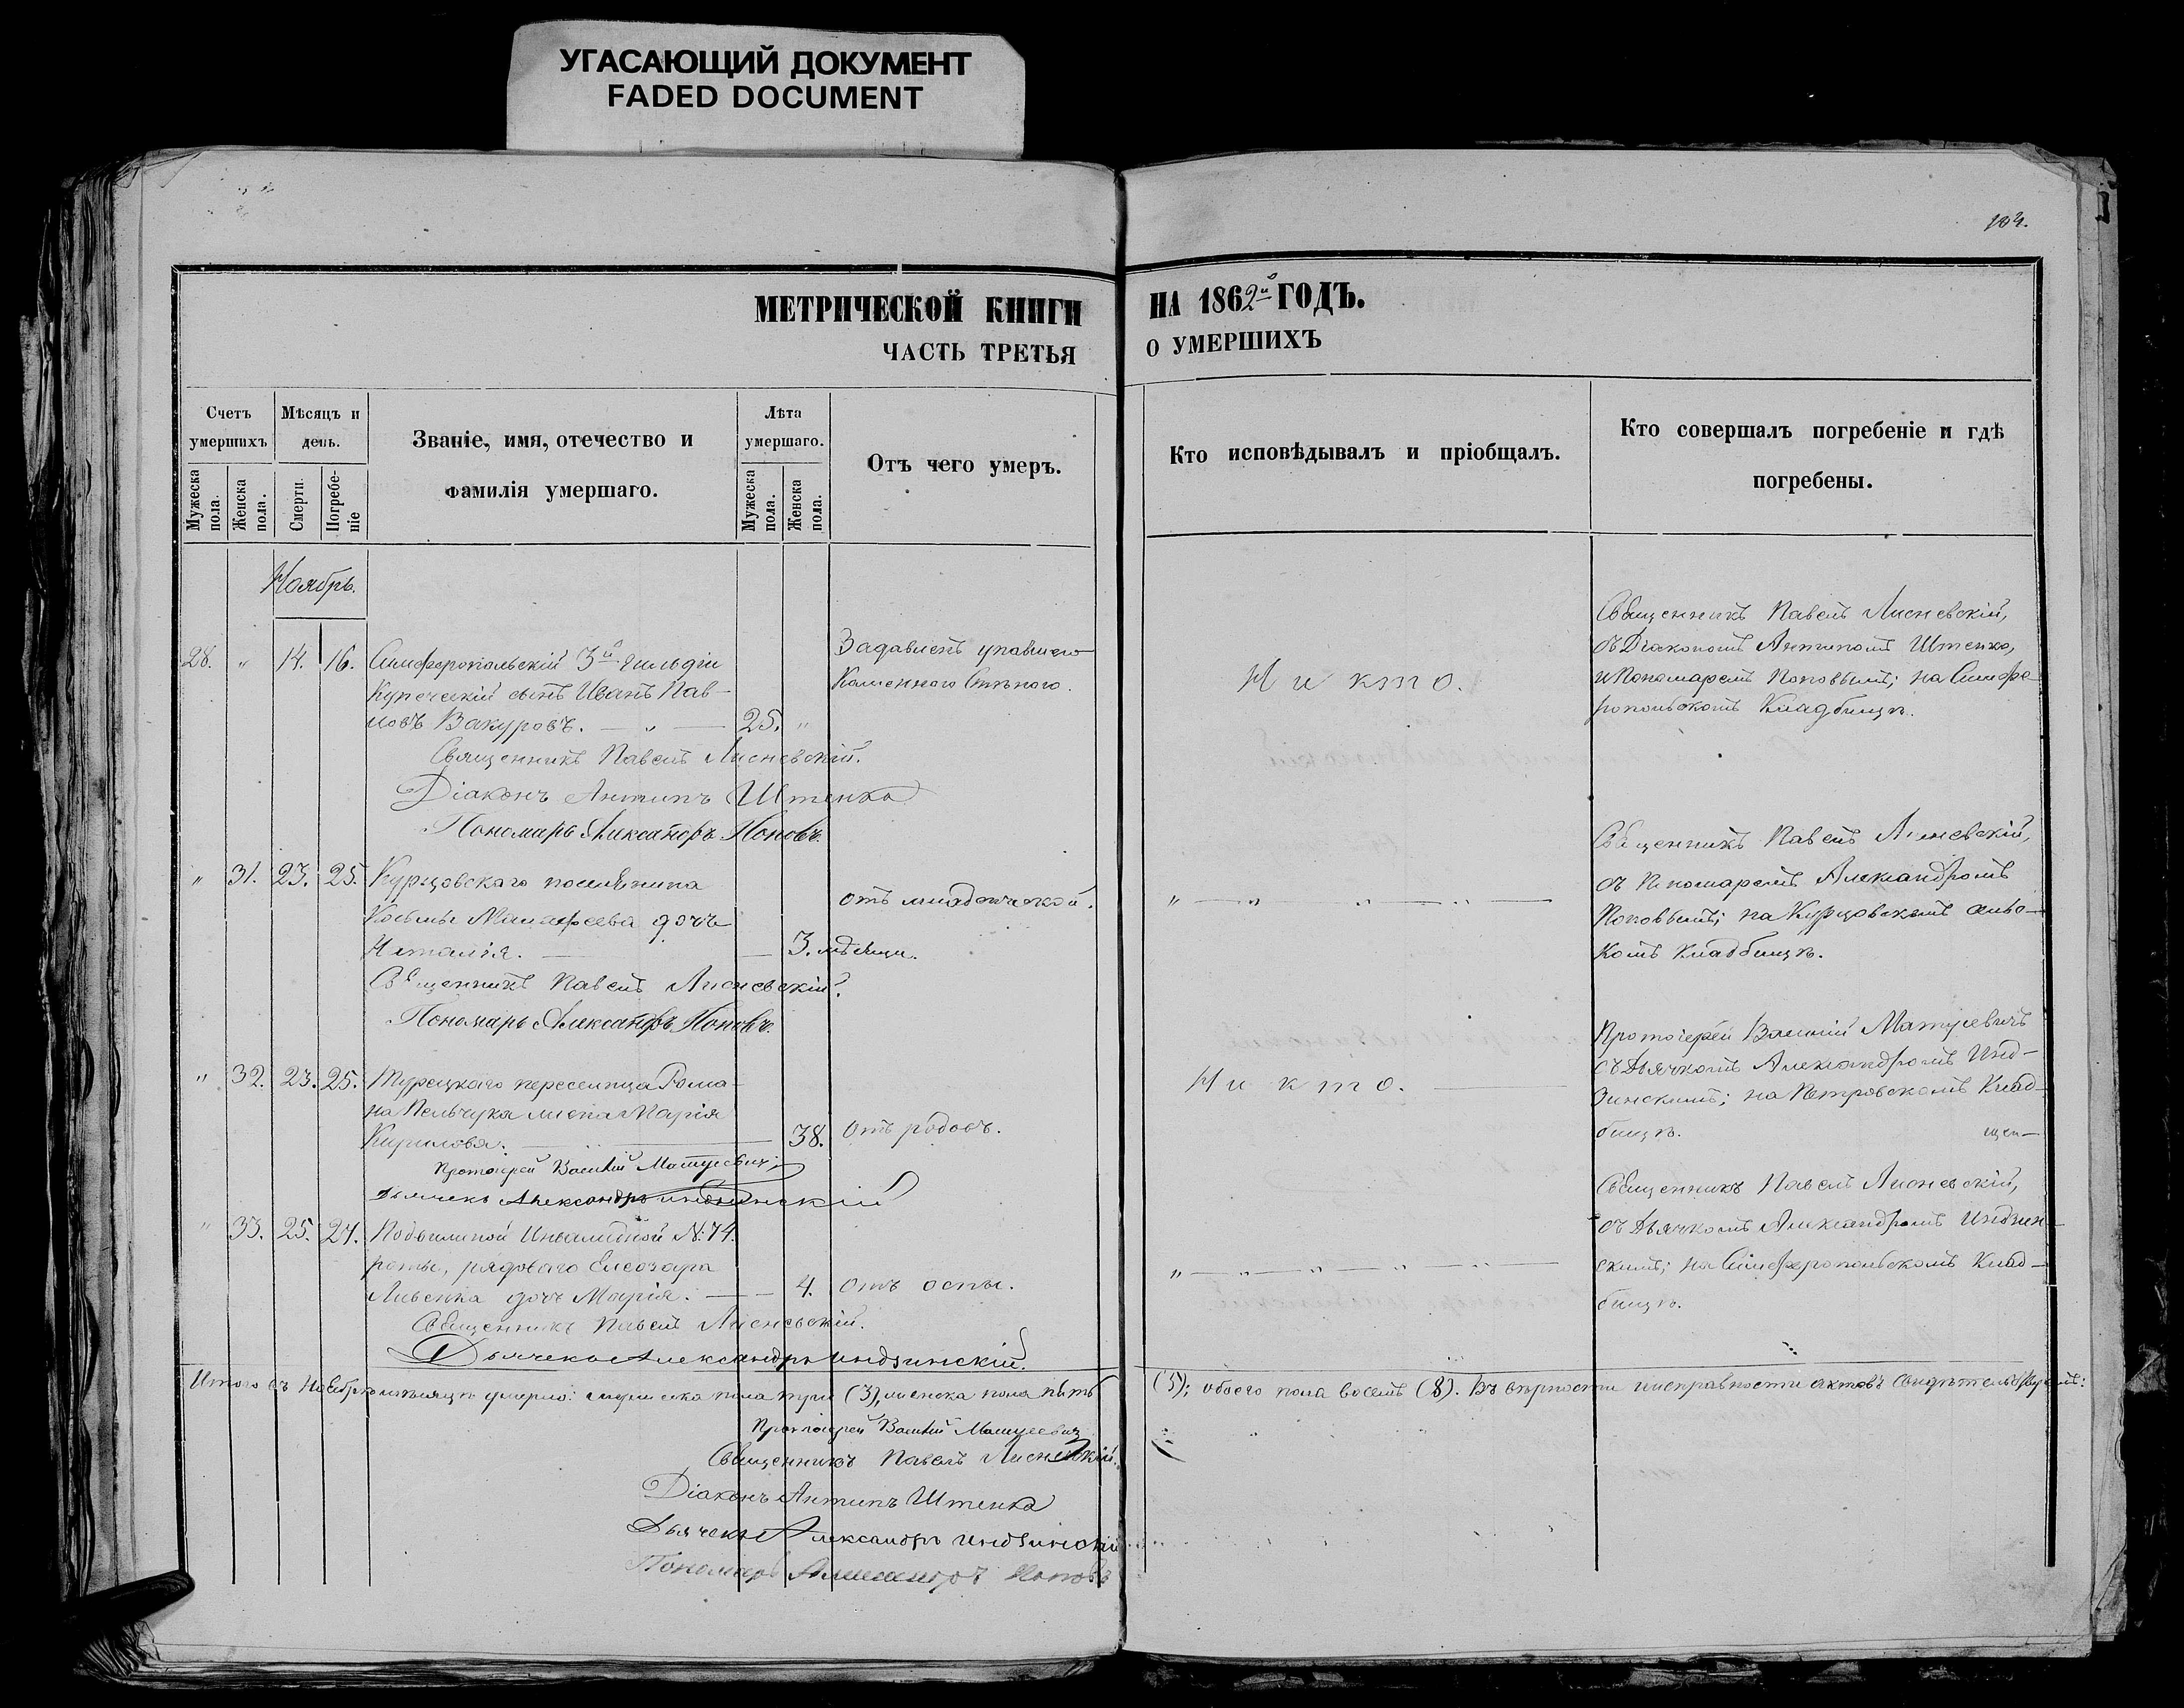 УГАСАЮЩИЙ ДОКУМЕНТ
FADED DOCUMENT
МЕТРИЧЕСКОЙ КНИГИ
ЧАСТЬ ТРЕТЬЯ
Счетъ умершихъ
Мужеска пола.
Женска пола.
Мѣсяцъ и день.
Смерти.
Погребеніе
Званіе, имя, отечество и
фамилія умершаго.
Лѣта умершаго.
Мужеска пола.
Женска пола.
Отъ чего умеръ.
Ноябрь.
28. " 14. 16. Симферопольскій 3й гильдіи
Купеческій сынъ Иванъ Пав-
ловъ Вакуровъ. — " — 25. "
Задавленъ упавшею
Каменного Стѣного.
Священникъ Павелъ Лисневскій.
Діаконъ Антипъ Штенко
Пономарь Александръ Поповъ.
" 31. 23. 25. Курцовскаго поселянина
Косьмы дочь
Наталія. — 3. мѣсяца.
отъ младенческой.
Священникъ Павелъ Лисневскій.
Пономарь Александръ Поповъ.
" 32. 23. 25. Турецкаго переселенца Рома-
на Пельчука жена Марія
Кирилова. — 38. отъ родовъ.
Протоіерей Василій Матусевичъ
Дьячекъ Александръ Индзинскій
" 33. 25. 27. Подвижной Инвалидной №: 74.
роты, рядоваго
дочь Марія. — 4. отъ оспы.
Священникъ Павелъ Лисневскій.
Дьячекъ Александръ Индзинскій.
Итого въ Ноябрѣ мѣсяцѣ умерло: мужеска пола три (3), женска пола пять
Протоіерей Василій Матусевичъ
Священникъ Павелъ Лисневскій.
Діаконъ Антипъ Штенко
Дьячекъ Александръ Индзинскій
Пономарь Александръ Поповъ
НА 1862й ГОДЪ.
О УМЕРШИХЪ
Кто исповѣдывалъ и пріобщалъ.
Кто совершалъ погребеніе и гдѣ
погребены.
Никто.
Священникъ Павелъ Лисневскій,
съ Діакономъ Антипомъ Штенко,
и Пономаремъ Поповымъ; на Симфе-
ропольскомъ Кладбищѣ.
" — " — " — " —
Священникъ Павелъ Лисневскій,
съ Пономаремъ Александромъ
Поповымъ; на Курцовскомъ сельс-
комъ кладбищѣ.
Никто. —
Протоіерей Василій Матусевичъ
съ Дьячкомъ Александромъ Инд-
зинскимъ; на Петровскомъ Клад-
бищѣ.
" — " — " — " — " —
Священникъ Павелъ Лисневскій,
съ Дьячкомъ Александромъ Индзин-
скимъ; на Симферопольскомъ Клад-
бищѣ.
(5); обоего пола восемь (8). Въ вѣрности и исправности актовъ свидѣтельствуемъ: